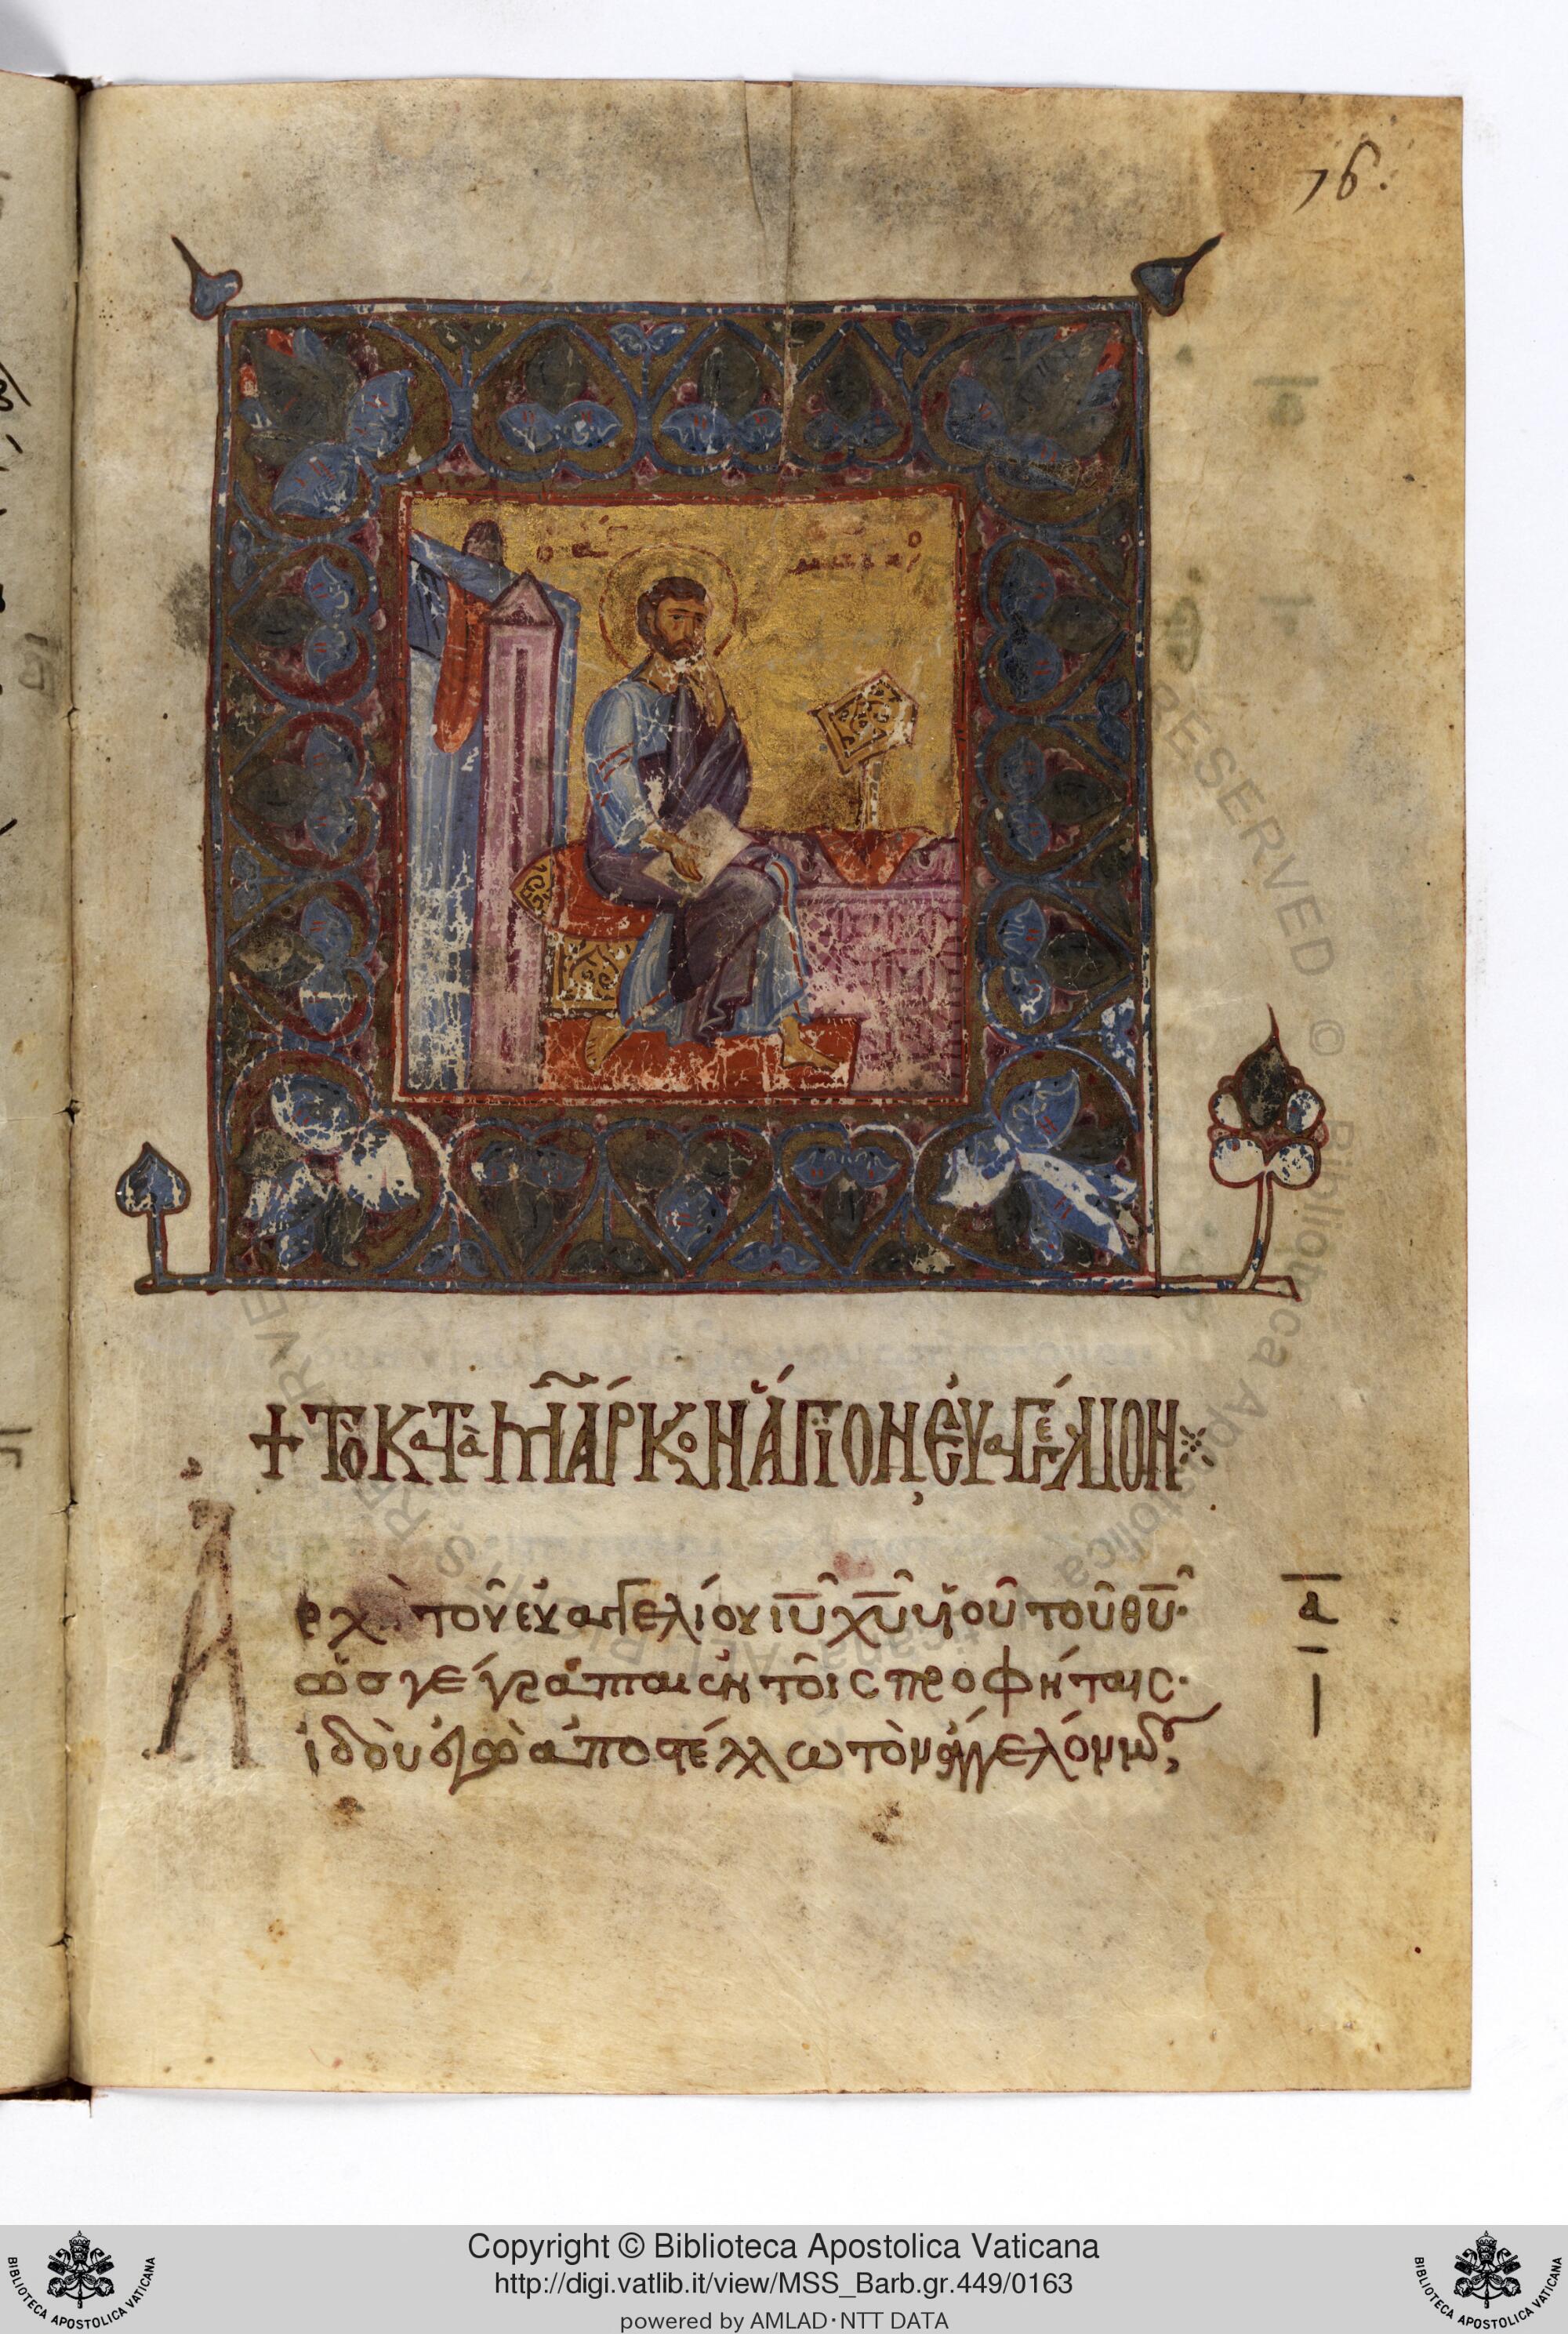 76.
ὁ ἅ
μαρκο
+ ΤὸΚαΤὰ ΜΆΡΚοΝ ἍΓΙΟΝ ΕὐαΓΓέΛΙΟΝ
Ἀρχὴ τοῦ εὐαγγελίου ιῦ χῦ υἱοῦ τοῦ θῦ· ᾱ
ὡσ γέγραπται ἐν τοῖς προφήταις·
ἰδοὺ ἐγὼ ἀποστέλλω τὸν ἄγγελόν μου,
RESERVED © Biblioteca Apostolica Vaticana. ALL RIGHTS RESERVED
Copyright © Biblioteca Apostolica Vaticana
http://digi.vatlib.it/view/MSS_Barb.gr.449/0163
powered by AMLAD·NTT DATA
BIBLIOTECA APOSTOLICA VATICANA
BIBLIOTECA APOSTOLICA VATICANA